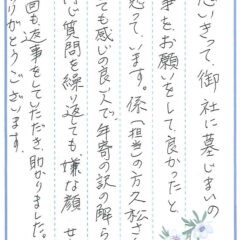 思いきって、御社に墓じまいの
事を、お願いをして、良かったと、
思って、います。係(担当)の方久松さん
ても感じの良い人で、年寄の訳の解ら
同じ質問を繰り返ても嫌な顔一
回も返事をしていただき、助かりました。
りがとうございます。